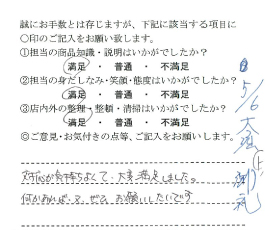 誠にお手数とは存じますが、下記に該当する項目に
○印のご記入をお願い致します。
①担当の商品知識・説明はいかがでしたか?
満足 ・ 普通 ・ 不満足
②担当の身だしなみ・笑顔・態度はいかがですか?
満足 ・ 普通 ・ 不満足
③店内外の整理・整頓・清掃はいかがですか?
満足 ・ 普通 ・ 不満足
◎ご意見・お気付きの点等、ご記入をお願いします。
対応が気持ちよくて、大変満足しました。
何かあれば、ぜひ、お願いしたいです
5/6